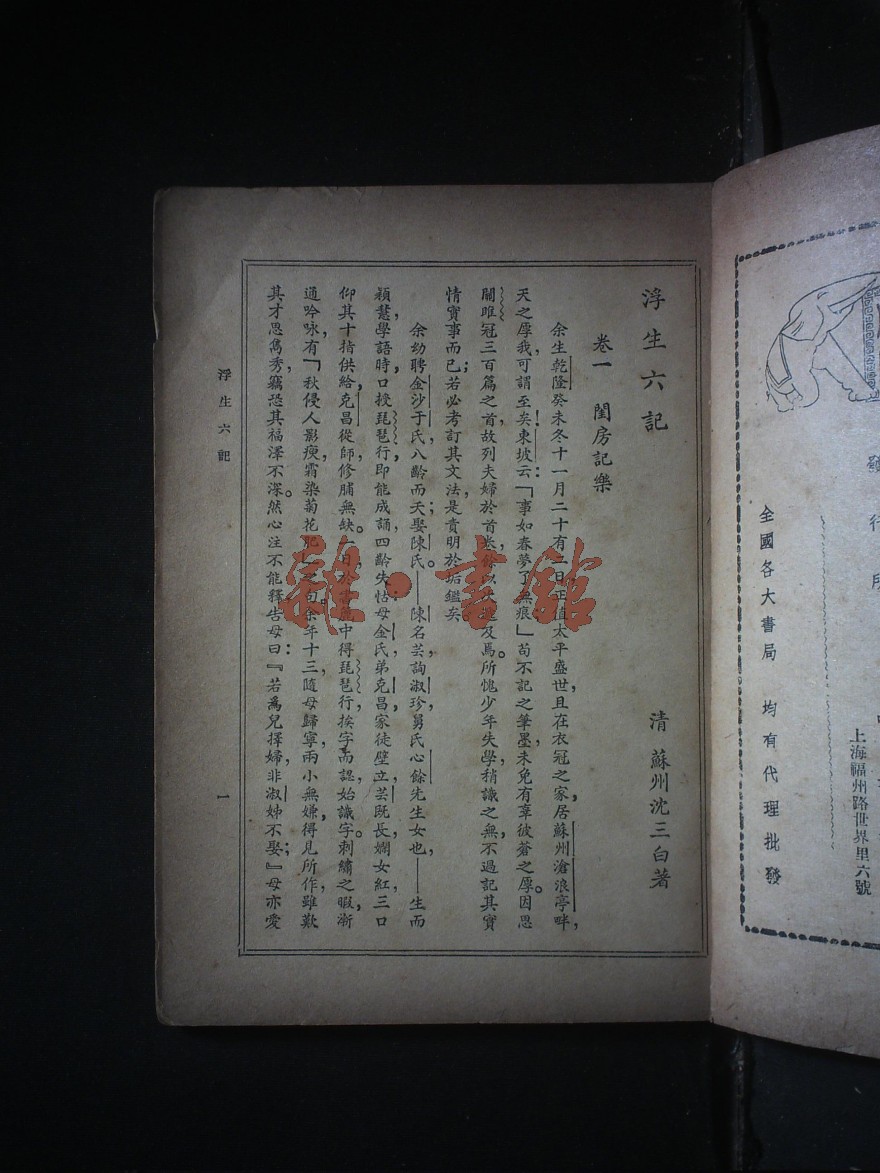 發行所
上海福州路世界里六號
全國各大書局 均有代理批發
浮生六記
清 蘇州沈三白著
卷一 閨房記樂
余生乾隆癸未冬十一月二十有二日正值太平盛世,且在衣冠之家居蘇州滄浪亭畔,
天之厚我,可謂至矣!東坡云:「事如春夢了無痕」苟不記之筆墨,未免有辜彼蒼之厚。因思
關雎冠三百篇之首,故列夫婦於首卷,餘以次遞及焉。所愧少年失學,稍識之無,不過記其實
情實事而已;若必考訂其文法,是責明於垢鑑矣
余幼聘金沙于氏,八齡而夭;娶陳氏。——陳名芸,詢淑珍,舅氏心餘先生女也——生而
穎慧,學語時,口授琵琶行,即能成誦,四齡失怙;母金氏,弟克昌,家徒壁立,芸既長,嫻女紅,三口
仰其十指供給,克昌從師修脯無缺。一日,於中得琵琶行,挨字而認,始識字。刺繡之暇,漸
通吟咏,有「秋侵人影瘦,霜染菊花肥」之句。余年十三,隨母歸寧,兩小無嫌,得見所作,雖歎
其才思雋秀,竊恐其福澤不深。然心注不能釋,告母曰:『若爲兒擇婦,非淑姊不娶;』母亦愛
浮生六記
一
雜·書館